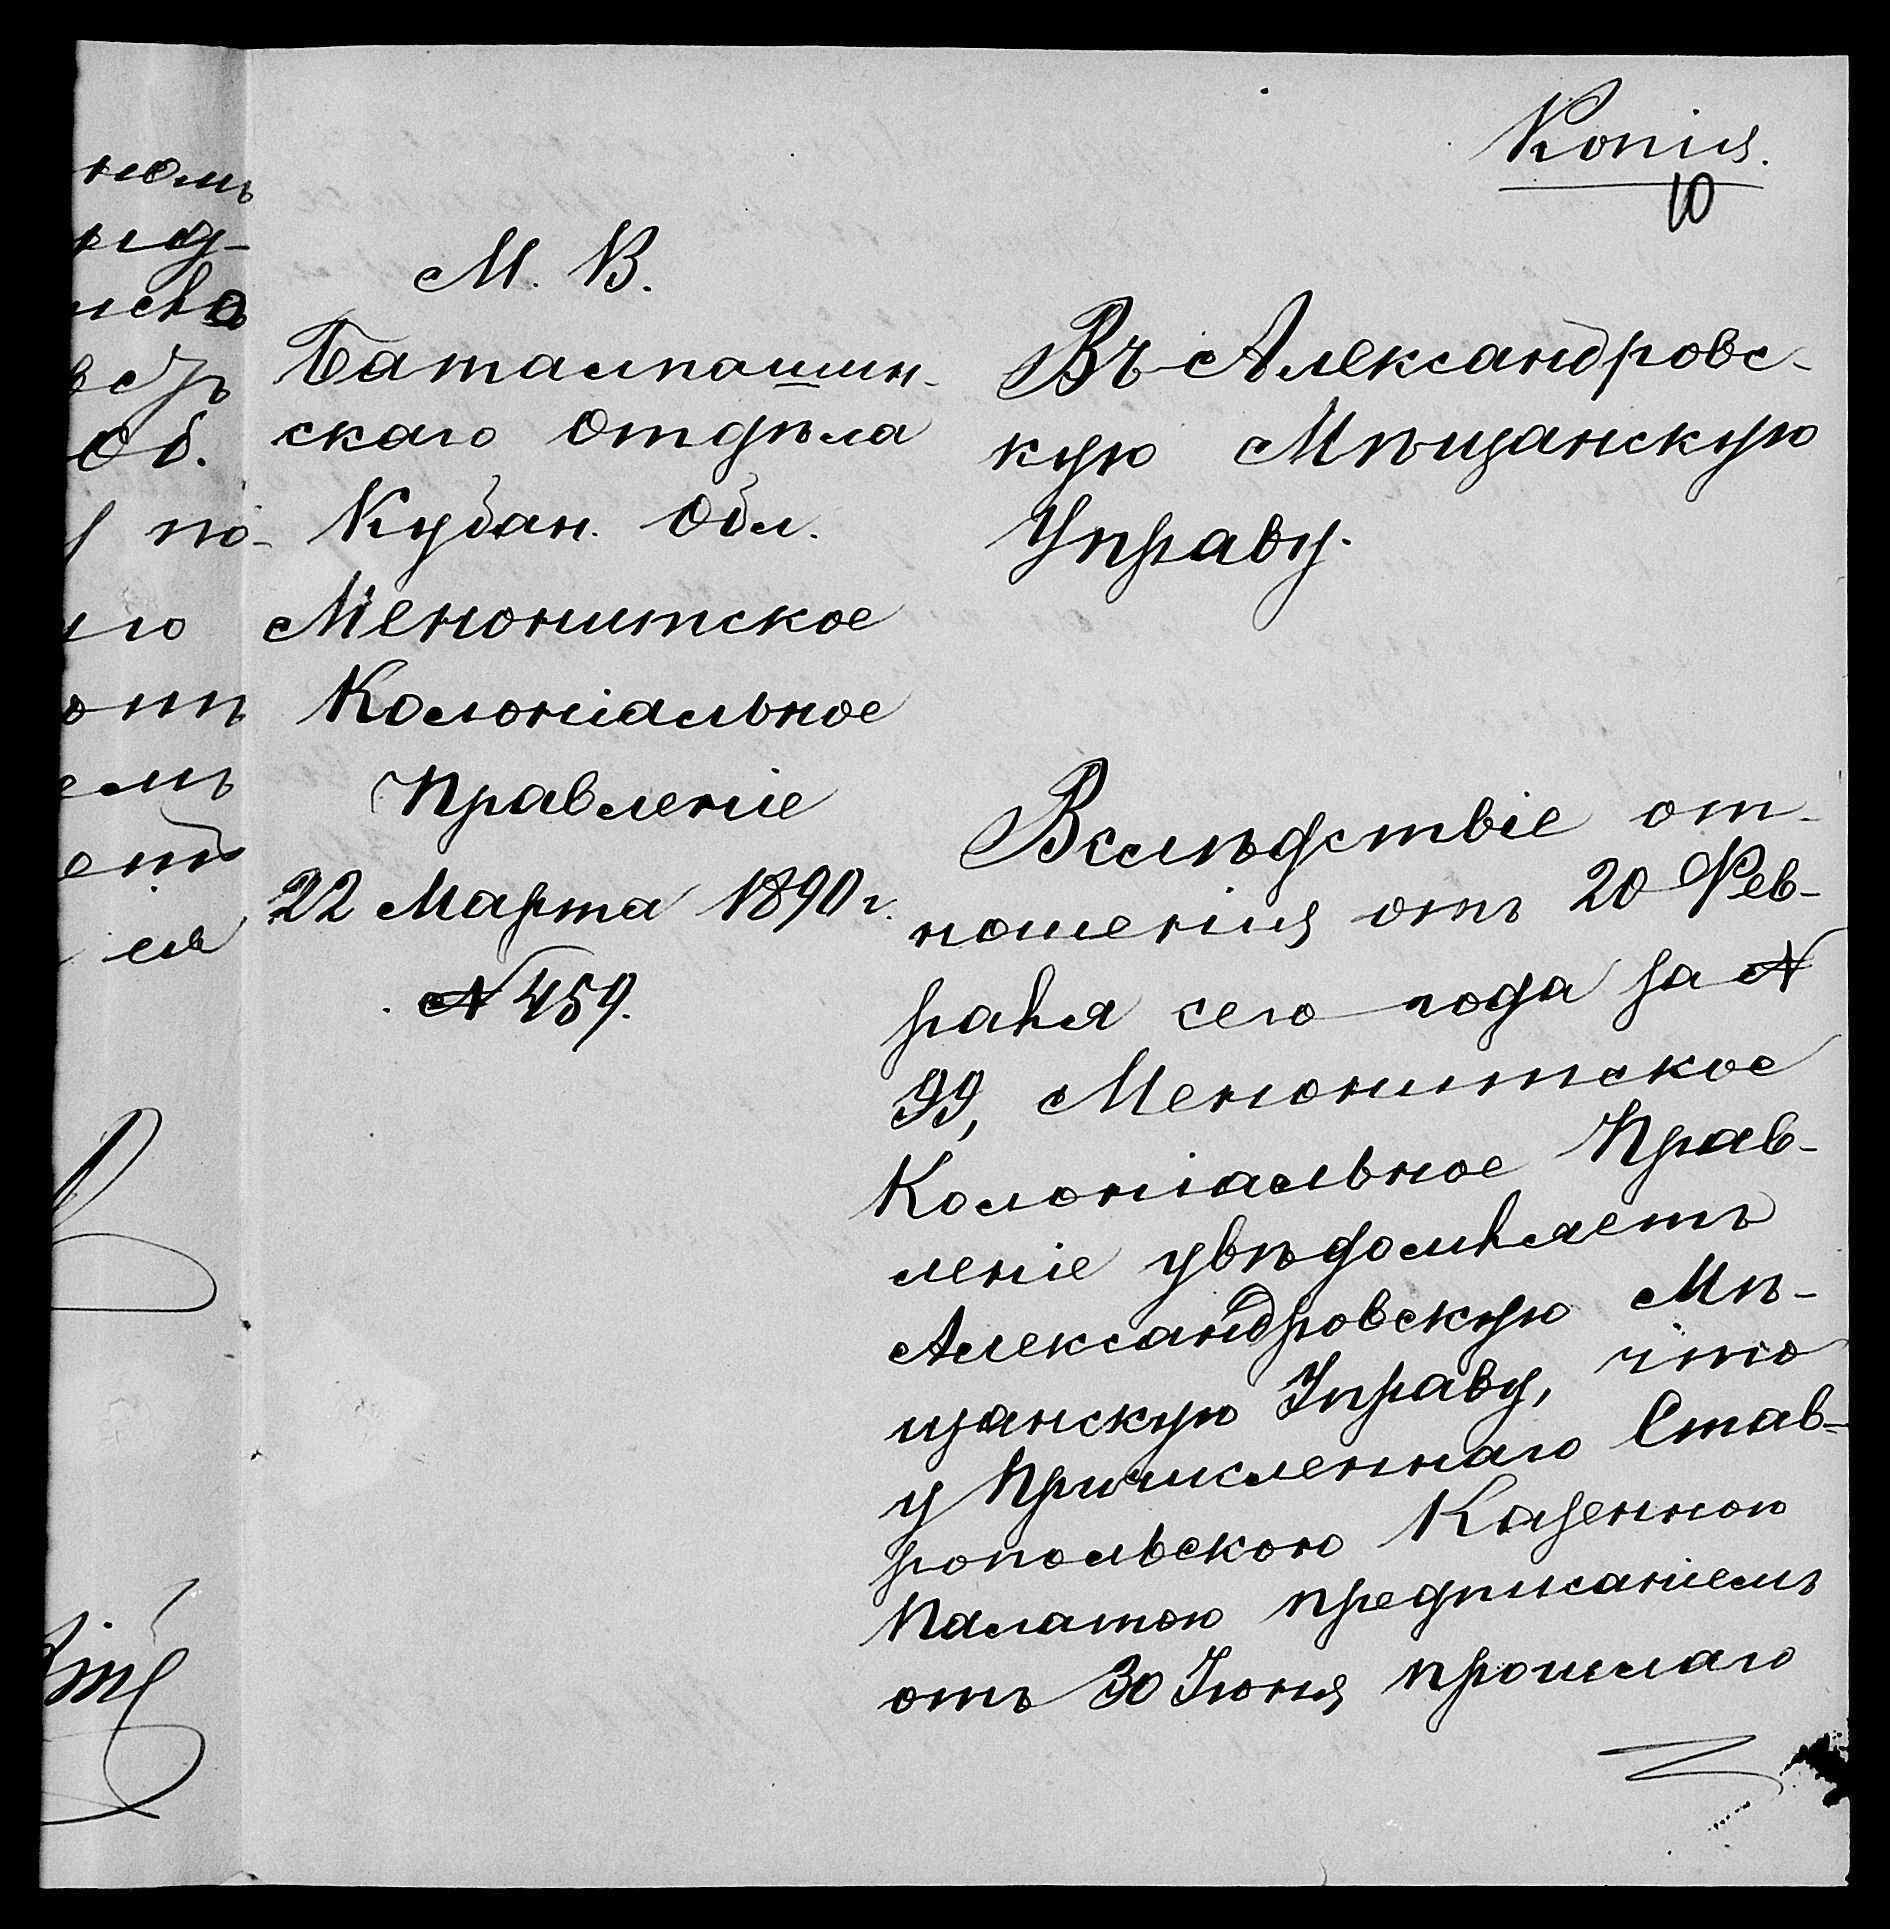 Копія.
10
М. В.
Баталпашин-
скаго Отдѣла
Кубан. Обл.
Менонитское
Колоніальное
Правленіе
22 Марта 1890 г.
№ 459.
Въ Александровс-
кую Мѣщанскую
Управу.
Вслѣдствіе от-
ношенія отъ 20 Фев-
раля сего года за №
99, Менонитское
Колоніальное Прав-
леніе увѣдомляетъ
Александровскую Мѣ-
щанскую Управу, что
у Причисленнаго Став-
ропольскою Казенною
Палатою предписаніемъ
отъ 30 Іюня прошлаго